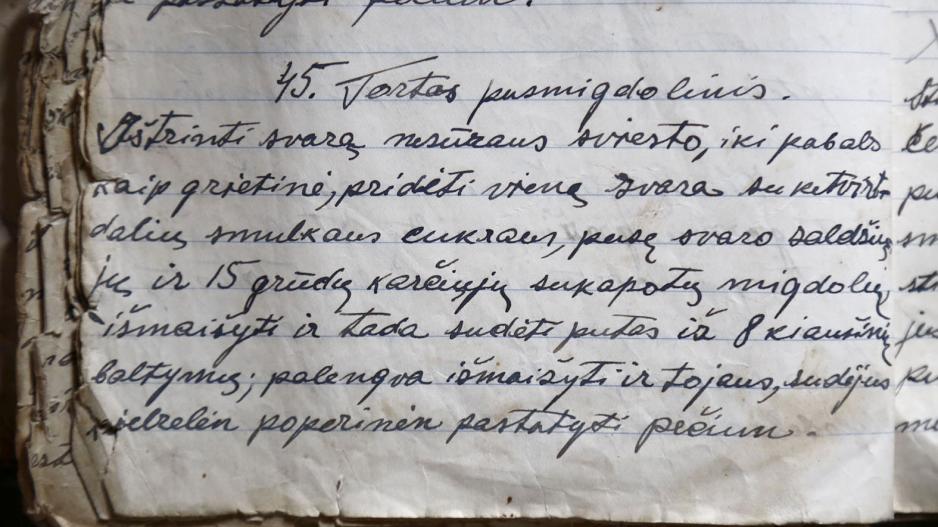 45. Tortas pusmigdolinis.
Ištrinti svarą nesūraus sviesto, iki pabals
kaip grietinė, pridėti vieną svarą su ketvirt-
daliu smulkaus cukraus, pusę svaro saldžių-
jų ir 15 grūdų karčiųjų sukapotų migdolų,
išmaišyti ir tada sudėti putas iš 8 kiaušinių
baltymų; palengva išmaišyti ir tojaus, sudėjus
popierinėn pastatyti pečiun.